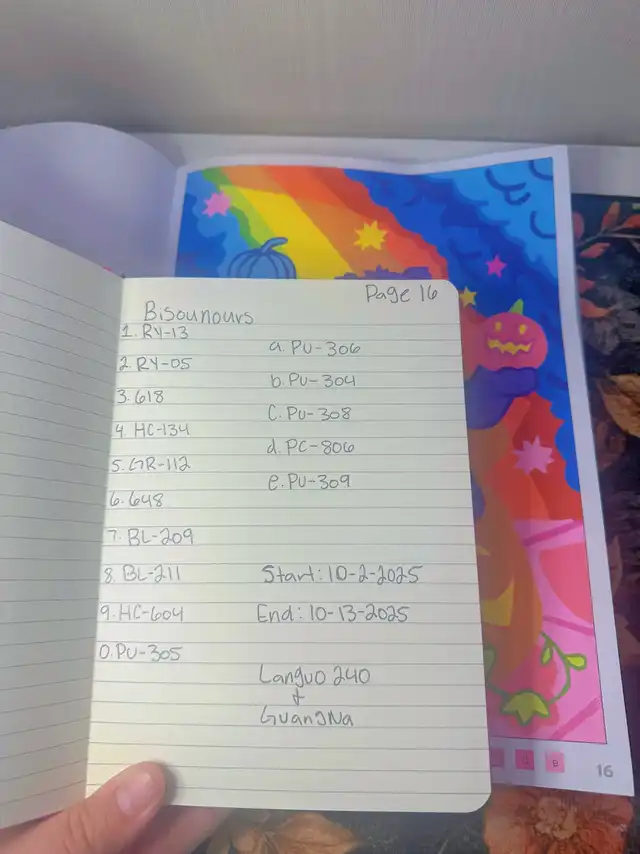 Page 16
Bisounours
1. RY-13
2. RY-05
3. 618
4. HC-134
5. GR-112
6. 648
7. BL-209
8. BL-211
9. HC-604
0. PU-305
a. PU-306
b. PU-304
c. PU-308
d. PC-806
e. PU-309
Start: 10-2-2025
End: 10-13-2025
Languo 240
+
GuangNa
e
16